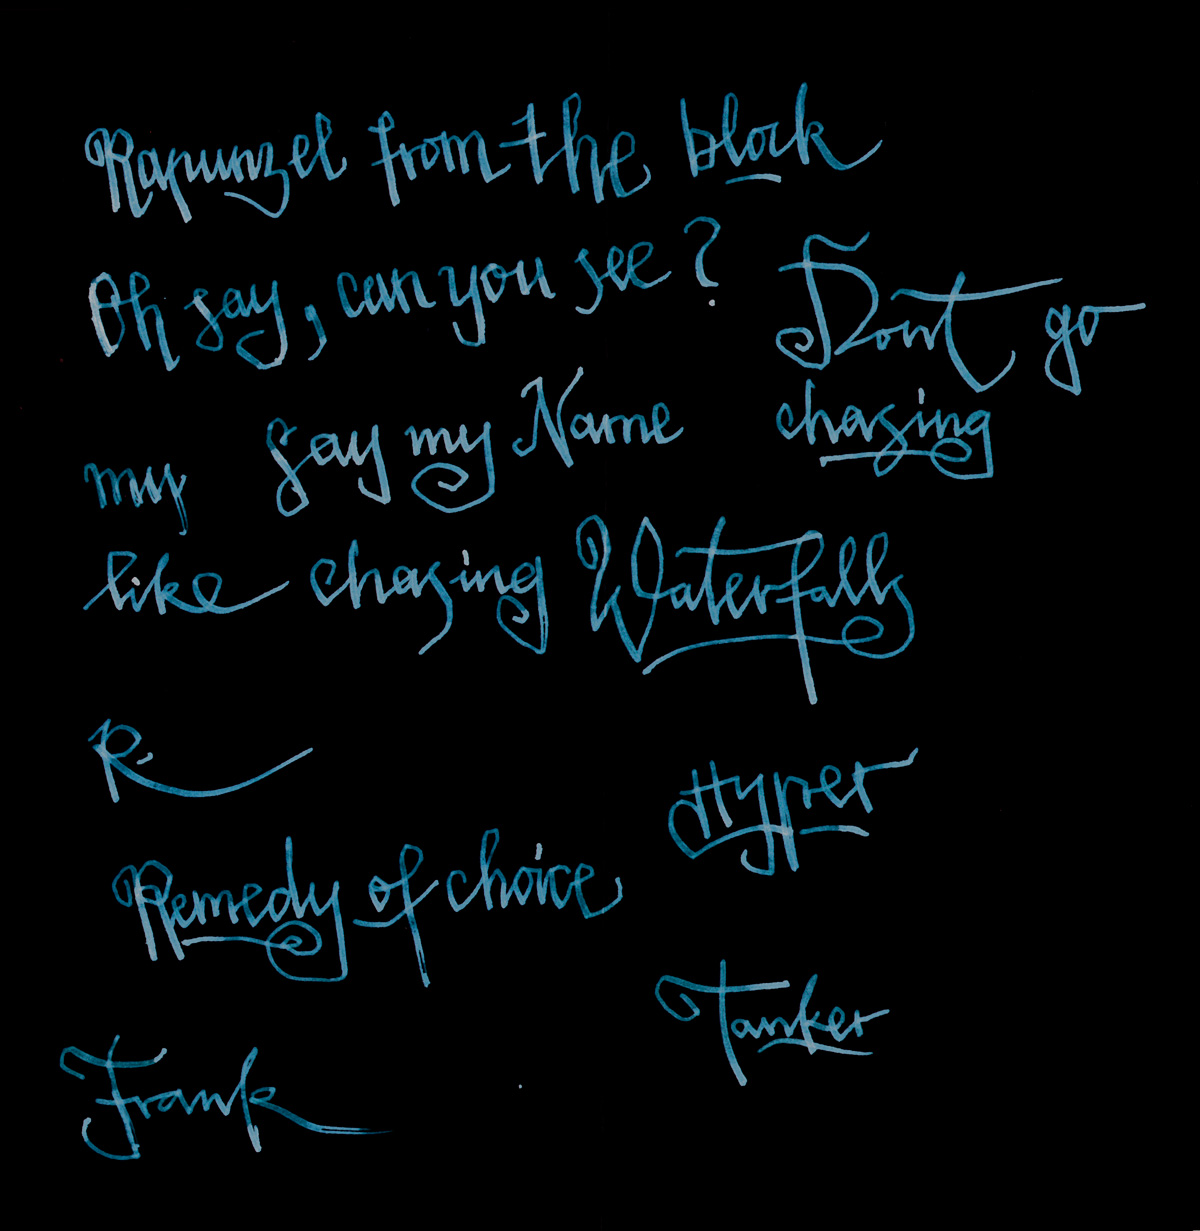 Rapunzel from the block
Oh say, can you see?
Dont go
chasing
my Say my Name
like chasing Waterfalls
R.
Hyper
Remedy of choice
Tanker
Frank